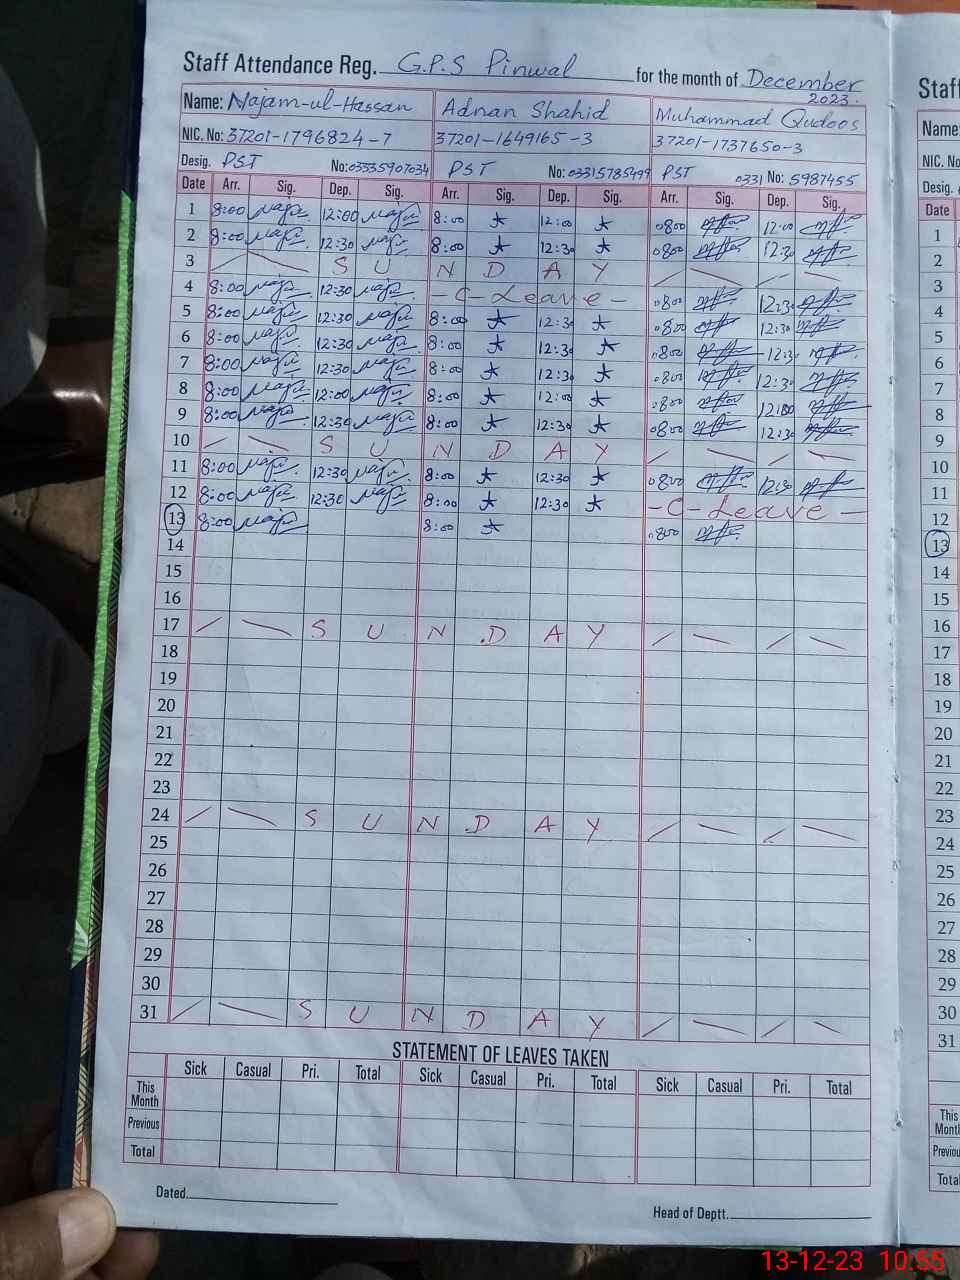 Staff Attendance Reg. G.P.S Pinwal for the month of December 2023.
Name: Najam-ul-Hassan Adnan Shahid Muhammad Qudoos
NIC. No: 37201-1796824-7 37201-1649165-3 37201-1737650-3
Desig. PST No: 03335907034 PST No: 03315785499 PST 0331 No: 5987455
Date Arr. Sig. Dep. Sig. Arr. Sig. Dep. Sig. Arr. Sig. Dep. Sig.
1 8:00 12:00 8:00 12:00 0800 12:00
2 8:00 12:30 8:00 12:30 0800 12:30
3 S U N D A Y
4 8:00 12:30 -C-Leave- 0800 12:30
5 8:00 12:30 8:00 12:30 0800 12:30
6 8:00 12:30 8:00 12:30 0800 12:30
7 8:00 12:30 8:00 12:30 0800 12:30
8 8:00 12:00 8:00 12:00 0800 12:00
9 8:00 12:30 8:00 12:30 0800 12:30
10 S U N D A Y
11 8:00 12:30 8:00 12:30 0800 12:30
12 8:00 12:30 8:00 12:30 -C-Leave-
13 8:00 8:00 0800
14
15
16
17 S U N D A Y
18
19
20
21
22
23
24 S U N D A Y
25
26
27
28
29
30
31 S U N D A Y
STATEMENT OF LEAVES TAKEN
Sick Casual Pri. Total Sick Casual Pri. Total Sick Casual Pri. Total
This Month
Previous
Total
Dated.
Head of Deptt.
Staff
Name:
NIC. No
Desig.
Date
1
2
3
4
5
6
7
8
9
10
11
12
13
14
15
16
17
18
19
20
21
22
23
24
25
26
27
28
29
30
31
This
Month
Previou
Total
13-12-23 10:55